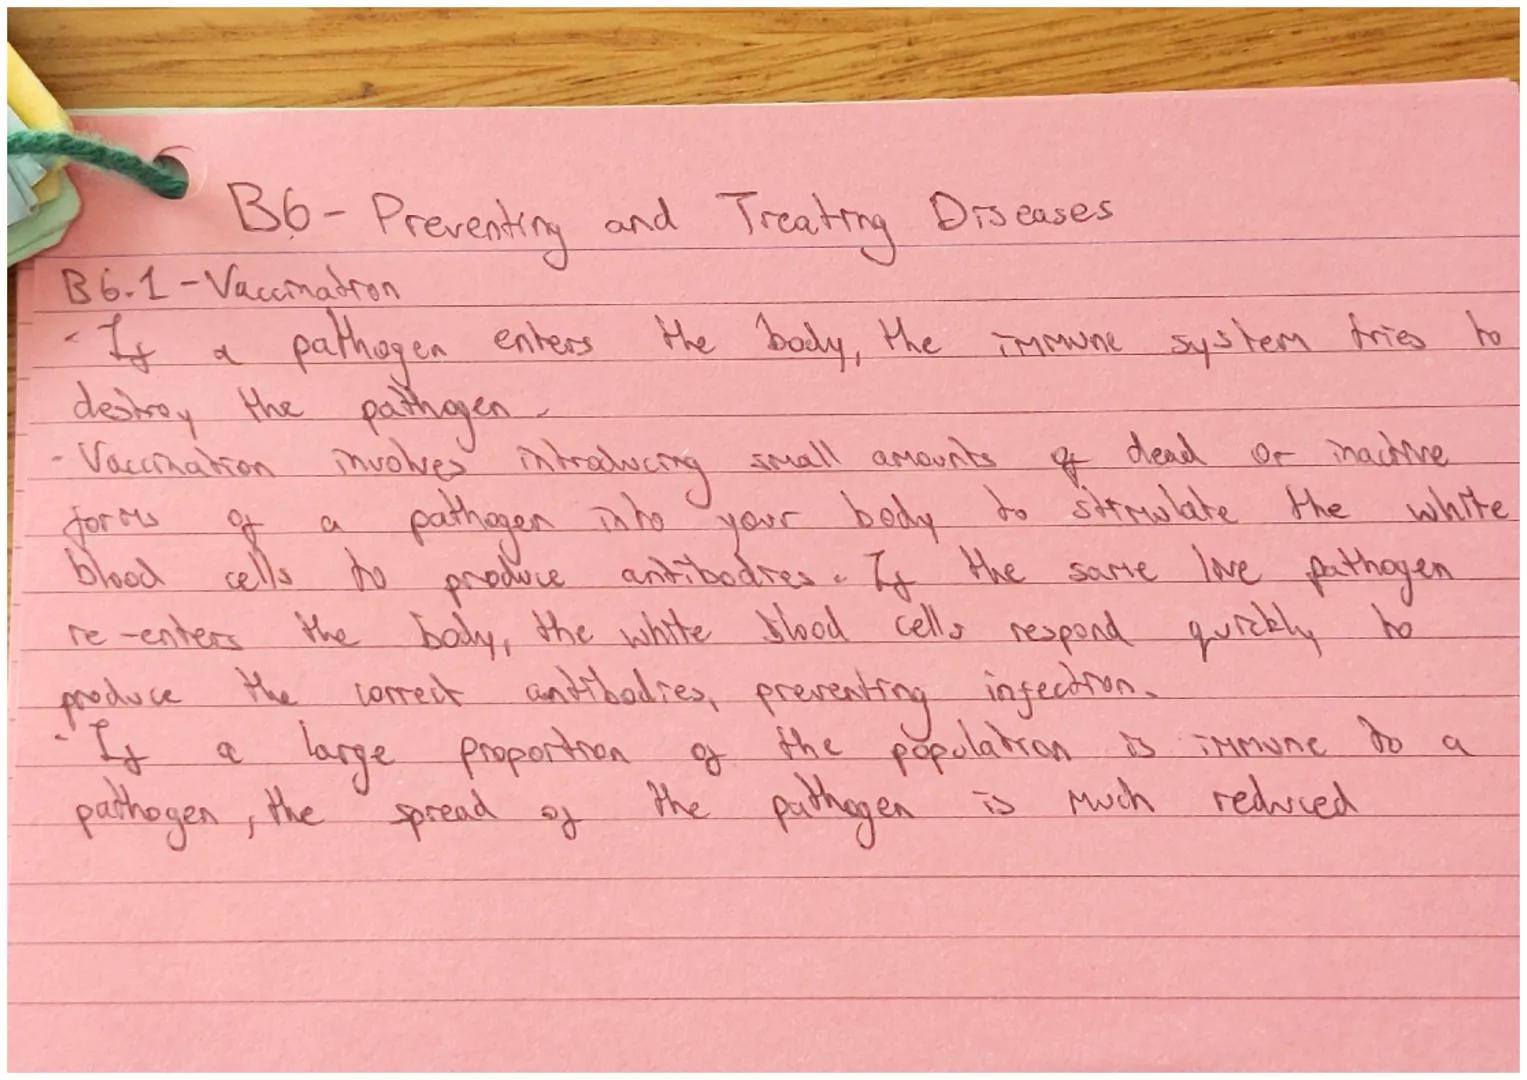 B6 - Preventing and Treating Diseases
B6.1 - Vaccination
- If a pathogen enters the body, the immune system tries to
destroy the pathogen.
- Vaccination involves introducing small amounts of dead or inactive
forms of a pathogen into your body to stimulate the white
blood cells to produce antibodies. If the same live pathogen
re-enters the body, the white blood cells respond quickly to
produce the correct antibodies, preventing infection.
- If a large proportion of the population is immune to a
pathogen, the spread of the pathogen is much reduced